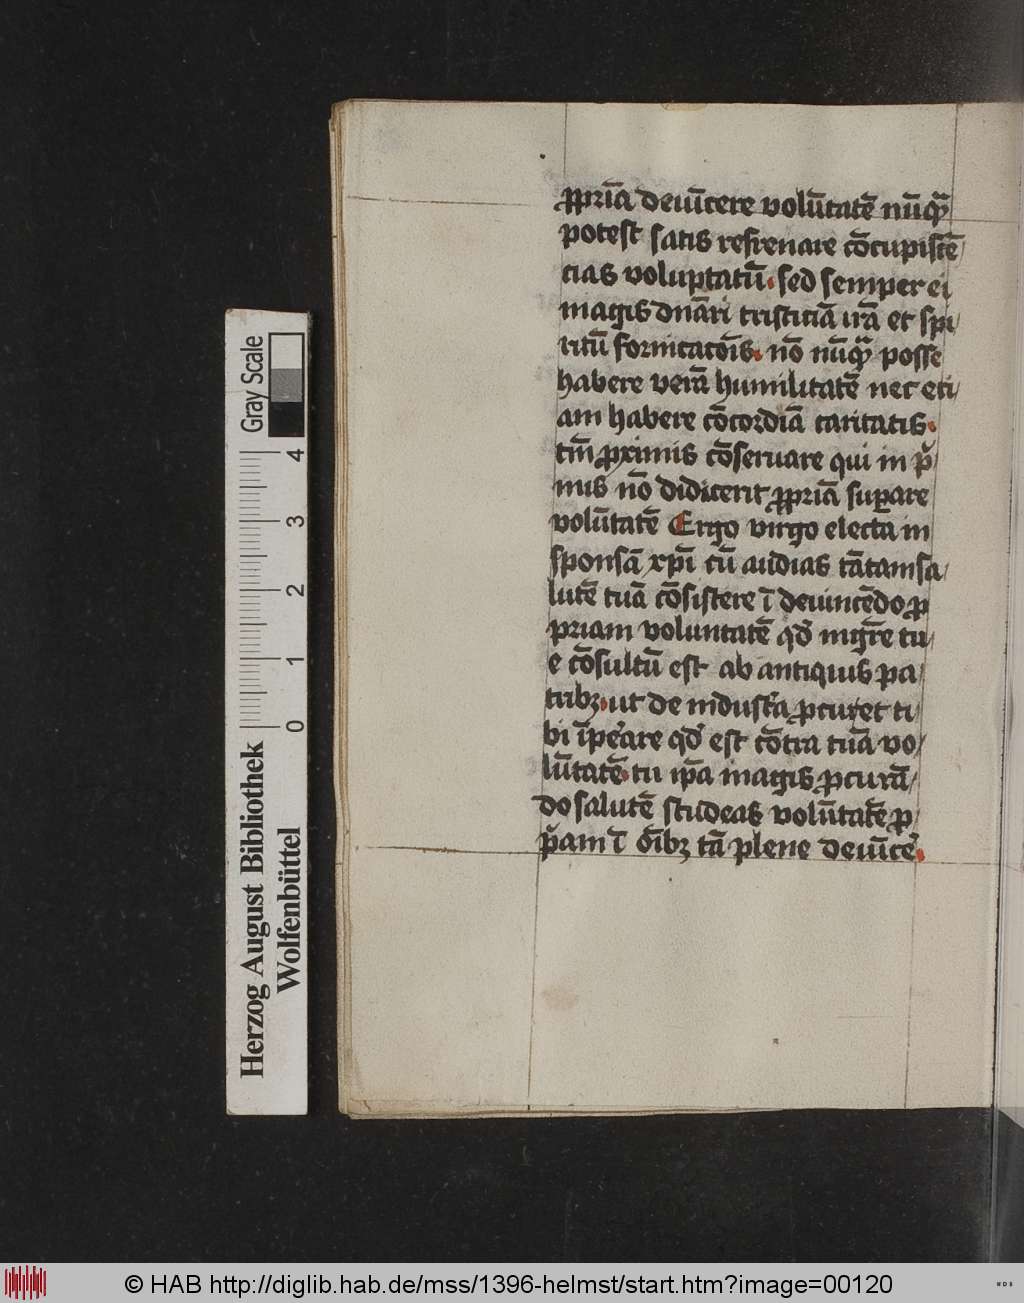 ꝓpriā deuīcere volūtatē nūqͣ
potest satis refrenare cōcupiscē/
cias voluptatū. sed semper ei
magis dnāri tristiciā irā et spi/
ritū fornicatōis. nō nūqͣ posse
habere verā humilitatē nec eci/
am habere cōcordiā caritatis.
tm̄ ꝓximis cōseruare qui in pͥ/
mis nō didicerit ꝓpriā suꝑare
volūtatē Ergo virgo electa in
sponsā xp̄i cū audias tātam sa/
lutē tuā cōsistere ī deuincēdo ꝓ
priam voluntatē qd̛ mgr̄e tu/
e cōsultū est ab antiquis pa/
tribꝫ. ut de industͥa ꝓcuret ti/
bi īpe̛are qd̛ est cōtra tuā vo/
lūtatē. tu ip̄a magis ꝓcurā/
do salutē studeas volūtatē ꝓ/
pͥam ī oībꝫ tā plene deuīce̛.
Gray Scale
4
3
2
1
0
Herzog August Bibliothek
Wolfenbüttel
© HAB http://diglib.hab.de/mss/1396-helmst/start.htm?image=00120
WDB